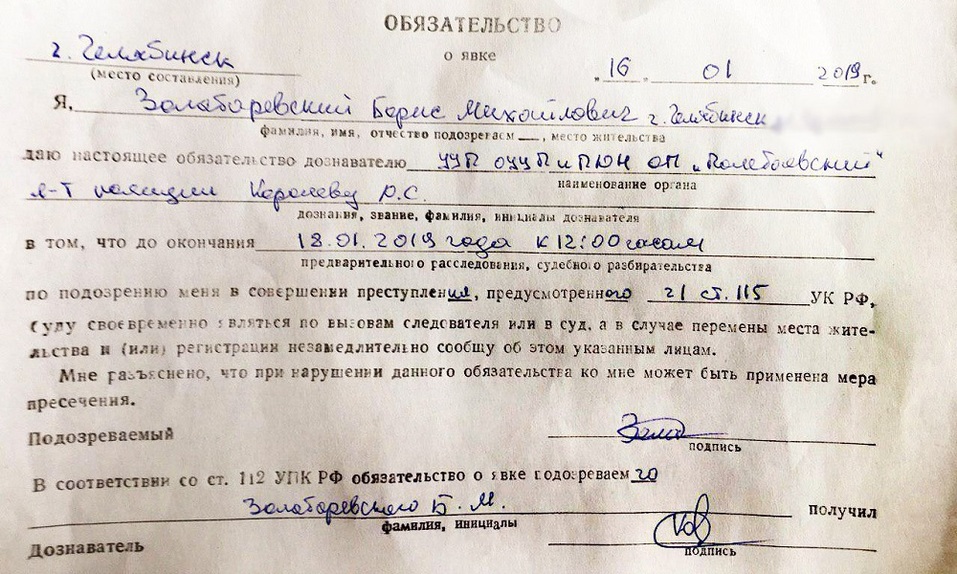 ОБЯЗАТЕЛЬСТВО
о явке
г. Челябинск
(место составления)
„ 16 „ 01 2019 г.
Я, Золатаревский Борис Михайлович г. Челябинск
фамилия, имя, отчество подозреваем___, место жительства
даю настоящее обязательство дознавателю УУП ОУУП и ПДН ОП „Полетаевский“
наименование органа
л-т полиции Королеву Р.С.
дознания, звание, фамилия, инициалы дознавателя
в том, что до окончания 18.01.2019 года к 12:00 часам
предварительного расследования, судебного разбирательства
по подозрению меня в совершении преступления, предусмотренного ч 1 ст. 115 УК РФ,
буду своевременно являться по вызовам следователя или в суд, а в случае перемены места жите-
льства и (или) регистрации незамедлительно сообщу об этом указанным лицам.
Мне разъяснено, что при нарушении данного обязательства ко мне может быть применена мера
пресечения.
Подозреваемый
подпись
В соответствии со ст. 112 УПК РФ обязательство о явке подозреваемого
Золатаревского Б. М. получил
фамилия, инициалы
Дознаватель
подпись